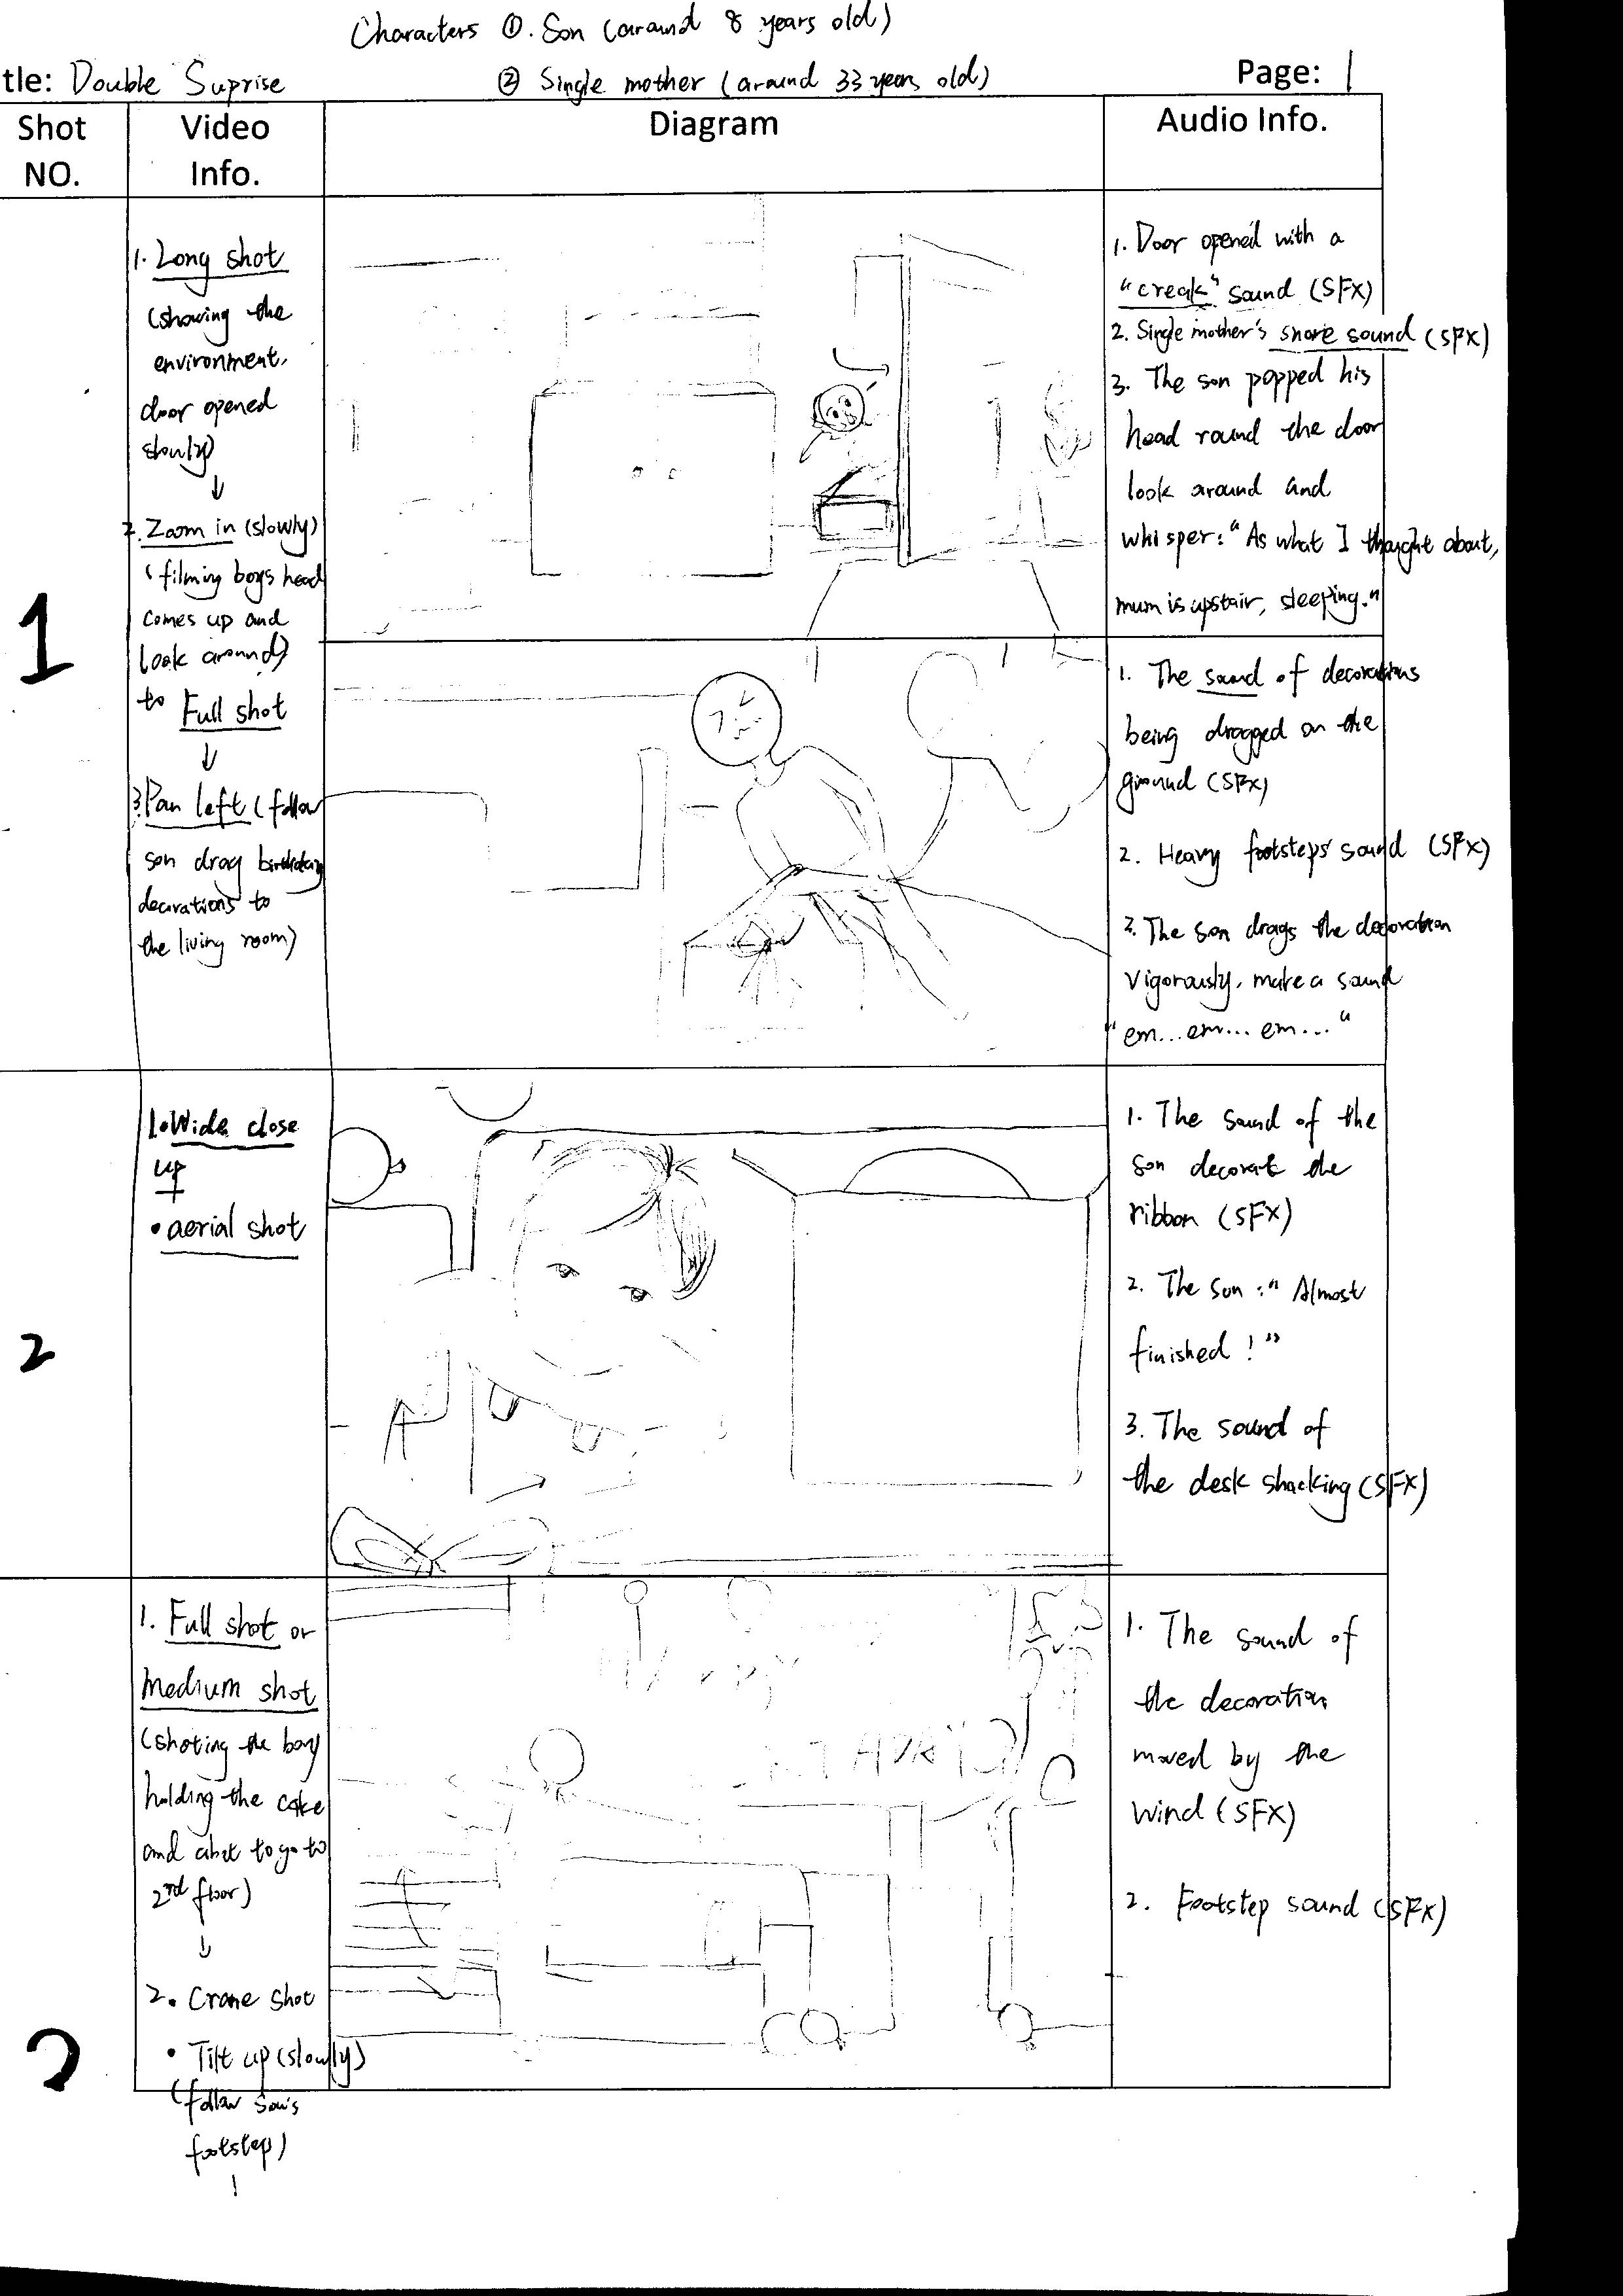 Characters ①. Son (around 8 years old)
tle: Double Suprise
② Single mother (around 33 years old)
Page: 1
Shot NO.
Video Info.
Diagram
Audio Info.
1
1. Long shot
(showing the
environment.
door opened
slowly)
↓
2. Zoom in (slowly)
(filming boys head
comes up and
look around)
to Full shot
↓
3. Pan left (follow
son drag birthday
decorations to
the living room)
1. Door opened with a
"creak" sound (SFX)
2. Single mother's snore sound (SFX)
3. The son popped his
head round the door
look around and
whisper: "As what I thought about,
mum is upstair, sleeping."
1. The sound of decorations
being dragged on the
ground (SFX)
2. Heavy footsteps sound (SFX)
3. The son drags the decoration
vigorously, make a sound
"em...em... em..."
2
1. Wide close
up
+
• aerial shot
1. The sound of the
son decorat the
ribbon (SFX)
2. The son: "Almost
finished!"
3. The sound of
the desk shacking (SFX)
1. Full shot or
medium shot
(shoting the boy
holding the cake
and abot to go to
2nd floor)
↓
2. Crane shot
• Tilt up (slowly)
(follow son's
footstep)
1. The sound of
the decoration
moved by the
wind (SFX)
2. Footstep sound (SFX)